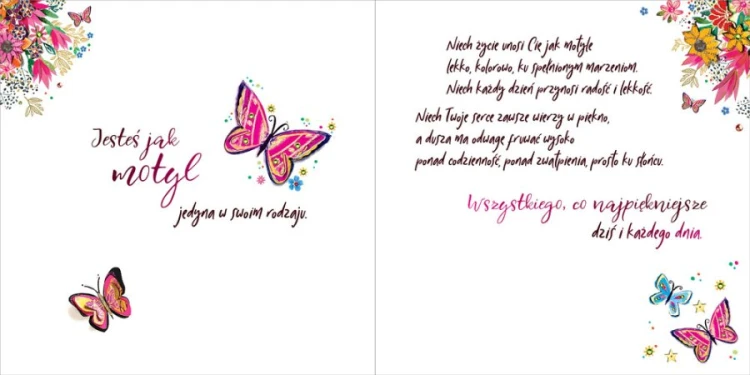 Jesteś jak
motyl
jedyna w swoim rodzaju.
Niech życie unosi Cię jak motyle
lekko, kolorowo, ku spełnionym marzeniom.
Niech każdy dzień przynosi radość i lekkość.
Niech Twoje serce zawsze wierzy w piękno,
a dusza ma odwagę fruwać wysoko
ponad codzienność, ponad zwątpienia, prosto ku słońcu.
Wszystkiego, co najpiękniejsze
dziś i każdego dnia.